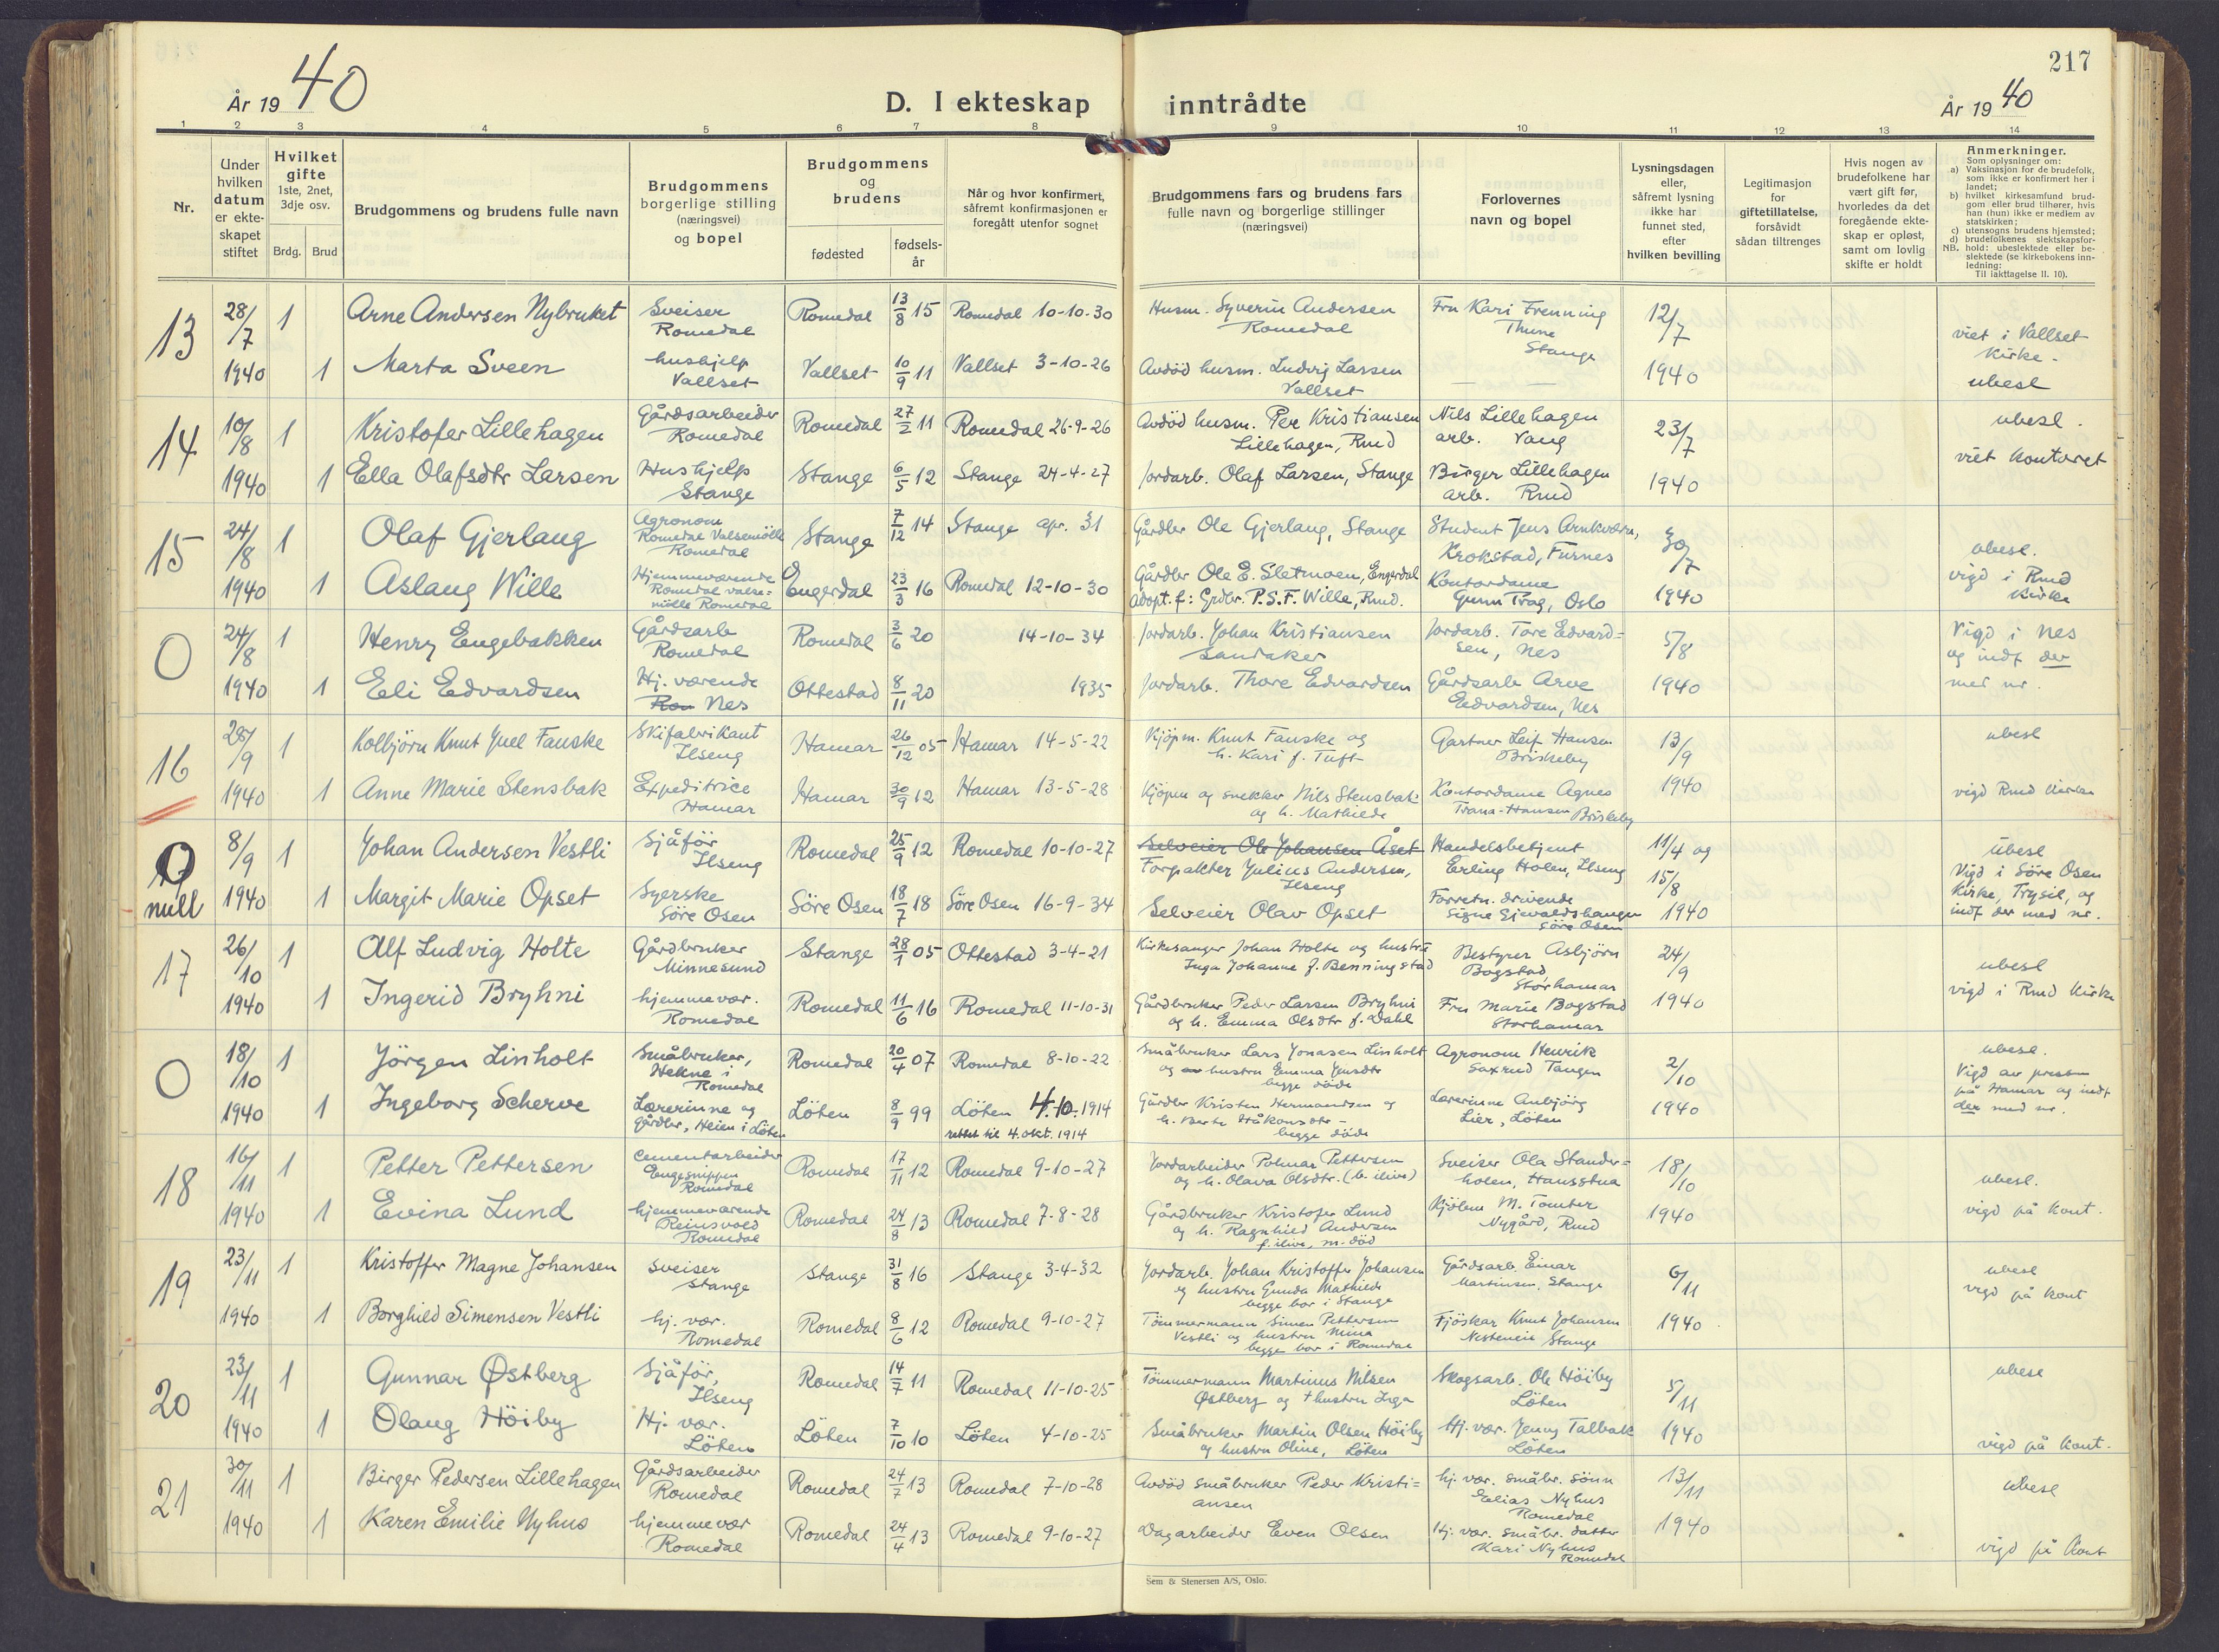 217
År 1940
D. I ekteskap inntrådte
År 1940
1 2 3 4 5 6 7 8 9 10 11 12 13 14
Nr.
Under
hvilken
datum
er ekte-
skapet
stiftet
Hvilket
gifte
1ste, 2net,
3dje osv.
Brdg.
Brud
Brudgommens og brudens fulle navn
Brudgommens
borgerlige stilling
(næringsvei)
og bopel
Brudgommens
og
brudens
fødested
fødsels-
år
Når og hvor konfirmert,
såfremt konfirmasjonen er
foregått utenfor sognet
Brudgommens fars og brudens fars
fulle navn og borgerlige stillinger
(næringsvei)
Forlovernes
navn og bopel
Lysningsdagen
eller,
såfremt lysning
ikke har
funnet sted,
efter
hvilken bevilling
Legitimasjon
for
giftetillatelse,
forsåvidt
sådan tiltrenges
Hvis nogen av
brudefolkene har
vært gift før,
hvorledes da det
foregående ekte-
skap er opløst,
samt om lovlig
skifte er holdt
Anmerkninger.
Som oplysninger om:
a) Vaksinasjon for de brudefolk,
som ikke er konfirmert her i
landet;
b) hvilket kirkesamfund brud-
gom eller brud tilhører, hvis
han (hun) ikke er medlem av
statskirken;
c) utensogns brudens hjemsted;
d) brudefolkenes slektskapsfor-
NB. hold: ubeslektede eller be-
slektede (se kirkebokens inn-
ledning:
Til iakttagelse II. 10).
13
28/7 1 Arne Andersen Nybruket Sveiser Romedal Romedal 13/8 15 Romedal 10-10-30 Husm. Syverin Andersen Romedal Fru Kari Frenning Thune Stange 12/7 viet i Vallset Kirke -
1940 1 Marta Sveen hushjelp Vallset Vallset 10/9 11 Vallset 3-10-26 Avdöd husm. Ludvig Larsen Vallset — — 1940 ubesl
14
10/8 1 Kristofer Lillehagen Gårdsarbeider Romedal Romedal 27/2 11 Romedal 26-9-26 Avdöd husm. Per Kristiansen Lillehagen, Rmd Nils Lillehagen arb. Vang 23/7 ubesl.
1940 1 Ella Olafsdtr Larsen Hushjelp Stange Stange 6/5 12 Stange 24-4-27 Jordarb. Olaf Larsen, Stange Birger Lillehagen arb. Rmd 1940 viet kontoret
15
24/8 1 Olaf Gjerlaug Agronom Romedal Valsemölle Romedal Stange 7/12 14 Stange apr. 31 Gårdbr Ole Gjerlaug, Stange Student Jens Arnkværn, Krokstad, Furnes 30/7 ubesl.
1940 1 Aslaug Wille Hjemmeværende Romedal valse- mölle Romedal Engerdal 23/3 16 Romedal 12-10-30 Gårdbr Ole E. Sletmoen, Engerdal adopt. f: Grdbr. P.S.F. Wille, Rmd. Kontordame Gunn Trag, Oslo 1940 vigd i Rmd Kirke
0
24/8 1 Henry Engebakken Gårdsarb Romedal Romedal 3/6 20 14-10-34 Jordarb. Johan Kristiansen Sandaker Jordarb. Tore Edvard= sen, Nes 5/8 Vigd i Nes og indf der
1940 1 Eli Edvardsen Hj. værende Rom Nes Ottestad 8/11 20 1935 Jordarb. Thore Edvardsen Gårdsarb Arve Edvardsen, Nes 1940 med nr.
16
28/9 1 Kolbjörn Knut Juel Fauske Skifabrikant Ilseng Hamar 26/12 05 Hamar 14-5-22 Kjöpm. Knut Fauske og h. Kari f. Tuft Gartner Leif Hansen Briskeby 13/9 ubesl
1940 1 Anne Marie Stensbak Expeditrice Hamar Hamar 30/9 12 Hamar 13-5-28 Kjöpm og snekker Nils Stensbak og h. Mathilde Kontordame Agnes Trana-Hansen Briskeby 1940 vigd Rmd Kirke
0 null
8/9 1 Johan Andersen Vestli Sjåför Ilseng Romedal 25/9 12 Romedal 10-10-27 Selveier Ole Johansen Åset Forpakter Julius Andersen, Ilseng Handelsbetjent Erling Holen, Ilseng 11/4 og 15/8 ubesl Vigd i Söre Osen
1940 1 Margit Marie Opset Syerske Söre Osen Söre Osen 18/7 18 Söre Osen 16-9-34 Selveier Olav Opset Forretn. drivende Signe Gjevaldshaugen Söre Osen 1940 Kirke, Trysil, og indf der med nr.
17
26/10 1 Alf Ludvig Holte Gårdbruker Minnesund Stange 28/1 05 Ottestad 3-4-21 Kirkesanger Johan Holte og hustru Inga Johanne f. Benningstad Bestyrer Asbjörn Bogstad, Storhamar 24/9 ubesl
1940 1 Ingerid Bryhni hjemmevær. Romedal Romedal 11/6 16 Romedal 11-10-31 Gårdbruker Peder Larsen Bryhni og h. Emma Olsdtr f. Dahl Fru Marie Bogstad Storhamar 1940 vigd i Rmd Kirke
0
18/10 1 Jörgen Linholt Småbruker, Hekne i Romedal Romedal 20/4 07 Romedal 8-10-22 Småbruker Lars Jonasen Linholt og hustru Emma Jensdtr begge döde Agronom Henrik Saxrud Tangen 2/10 ubesl. Vigd av presten
1940 1 Ingeborg Scherve Lærerinne og gårdbr, Heien i Löten Löten 8/9 99 Löten 4.10.1914 rettet til 4. okt. 1914 Gårdbr Kristen Hermandsen og h. Berte Håkonsdtr - begge döde Lærerinne Anbjörg Lier, Löten 1940 på Hamar og indf der med nr.
18
16/11 1 Petter Pettersen Cementarbeider Engesnippen Romedal Romedal 17/11 12 Romedal 9-10-27 Jordarbeider Polmar Pettersen og h. Olava Olsdtr. (b. ilive) Sveiser Ola Stander= holen, Hansstua 18/10 ubesl.
1940 1 Evina Lund hjemmeværende Reinsvold Romedal Romedal 24/8 13 Romedal 7-8-28 Gårdbruker Kristofer Lund og h. Ragnhild Andersen f. ilive, m. död M. Tomter Nygård, Rmd 1940 vigd på kont.
19
23/11 1 Kristoffer Magne Johansen Sveiser Stange Stange 31/8 16 Stange 3-4-32 Jordarb. Johan Kristoffer Johansen og hustru Gunda Mathilde begge bor i Stange Gårdsarb. Einar Martinsen, Stange 6/11 ubesl
1940 1 Borghild Simensen Vestli hj. vær. Romedal Romedal 8/6 12 Romedal 9-10-27 Tömmermann Simen Pettersen Vestli og hustru Mina begge bor i Romedal Fjöskar Knut Johansen Stange 1940 vigd på kont
20
23/11 1 Gunnar Østberg Sjåför, Ilseng Romedal 14/7 11 Romedal 11-10-25 Tömmermann Martinus Nilsen Østberg og † hustru Inga Skogsarb. Ole Höiby Löten 5/11 ubesl
1940 1 Olaug Höiby Hj. vær. Löten Löten 7/10 10 Löten 4-10-25 Småbruker Martin Olsen Höiby og hustru Oline, Löten Hj. vær. Jenny Talbak Löten 1940 vigd på kont.
21
30/11 1 Birger Pedersen Lillehagen Gårdsarbeider Romedal Romedal 24/7 13 Romedal 7-10-28 Avdöd småbruker Peder Kristi= ansen hj. vær. småbr. sönn Elias Nyhus Romedal 13/11 ubesl
1940 1 Karen Emilie Nyhus hjemmevær Romedal Romedal 24/4 13 Romedal 9-10-27 Dagarbeider Even Olsen Hj. vær. småbr. datter Kari Nyhus Romedal 1940 vigd på kont
Sem & Stenersen A/S, Oslo.